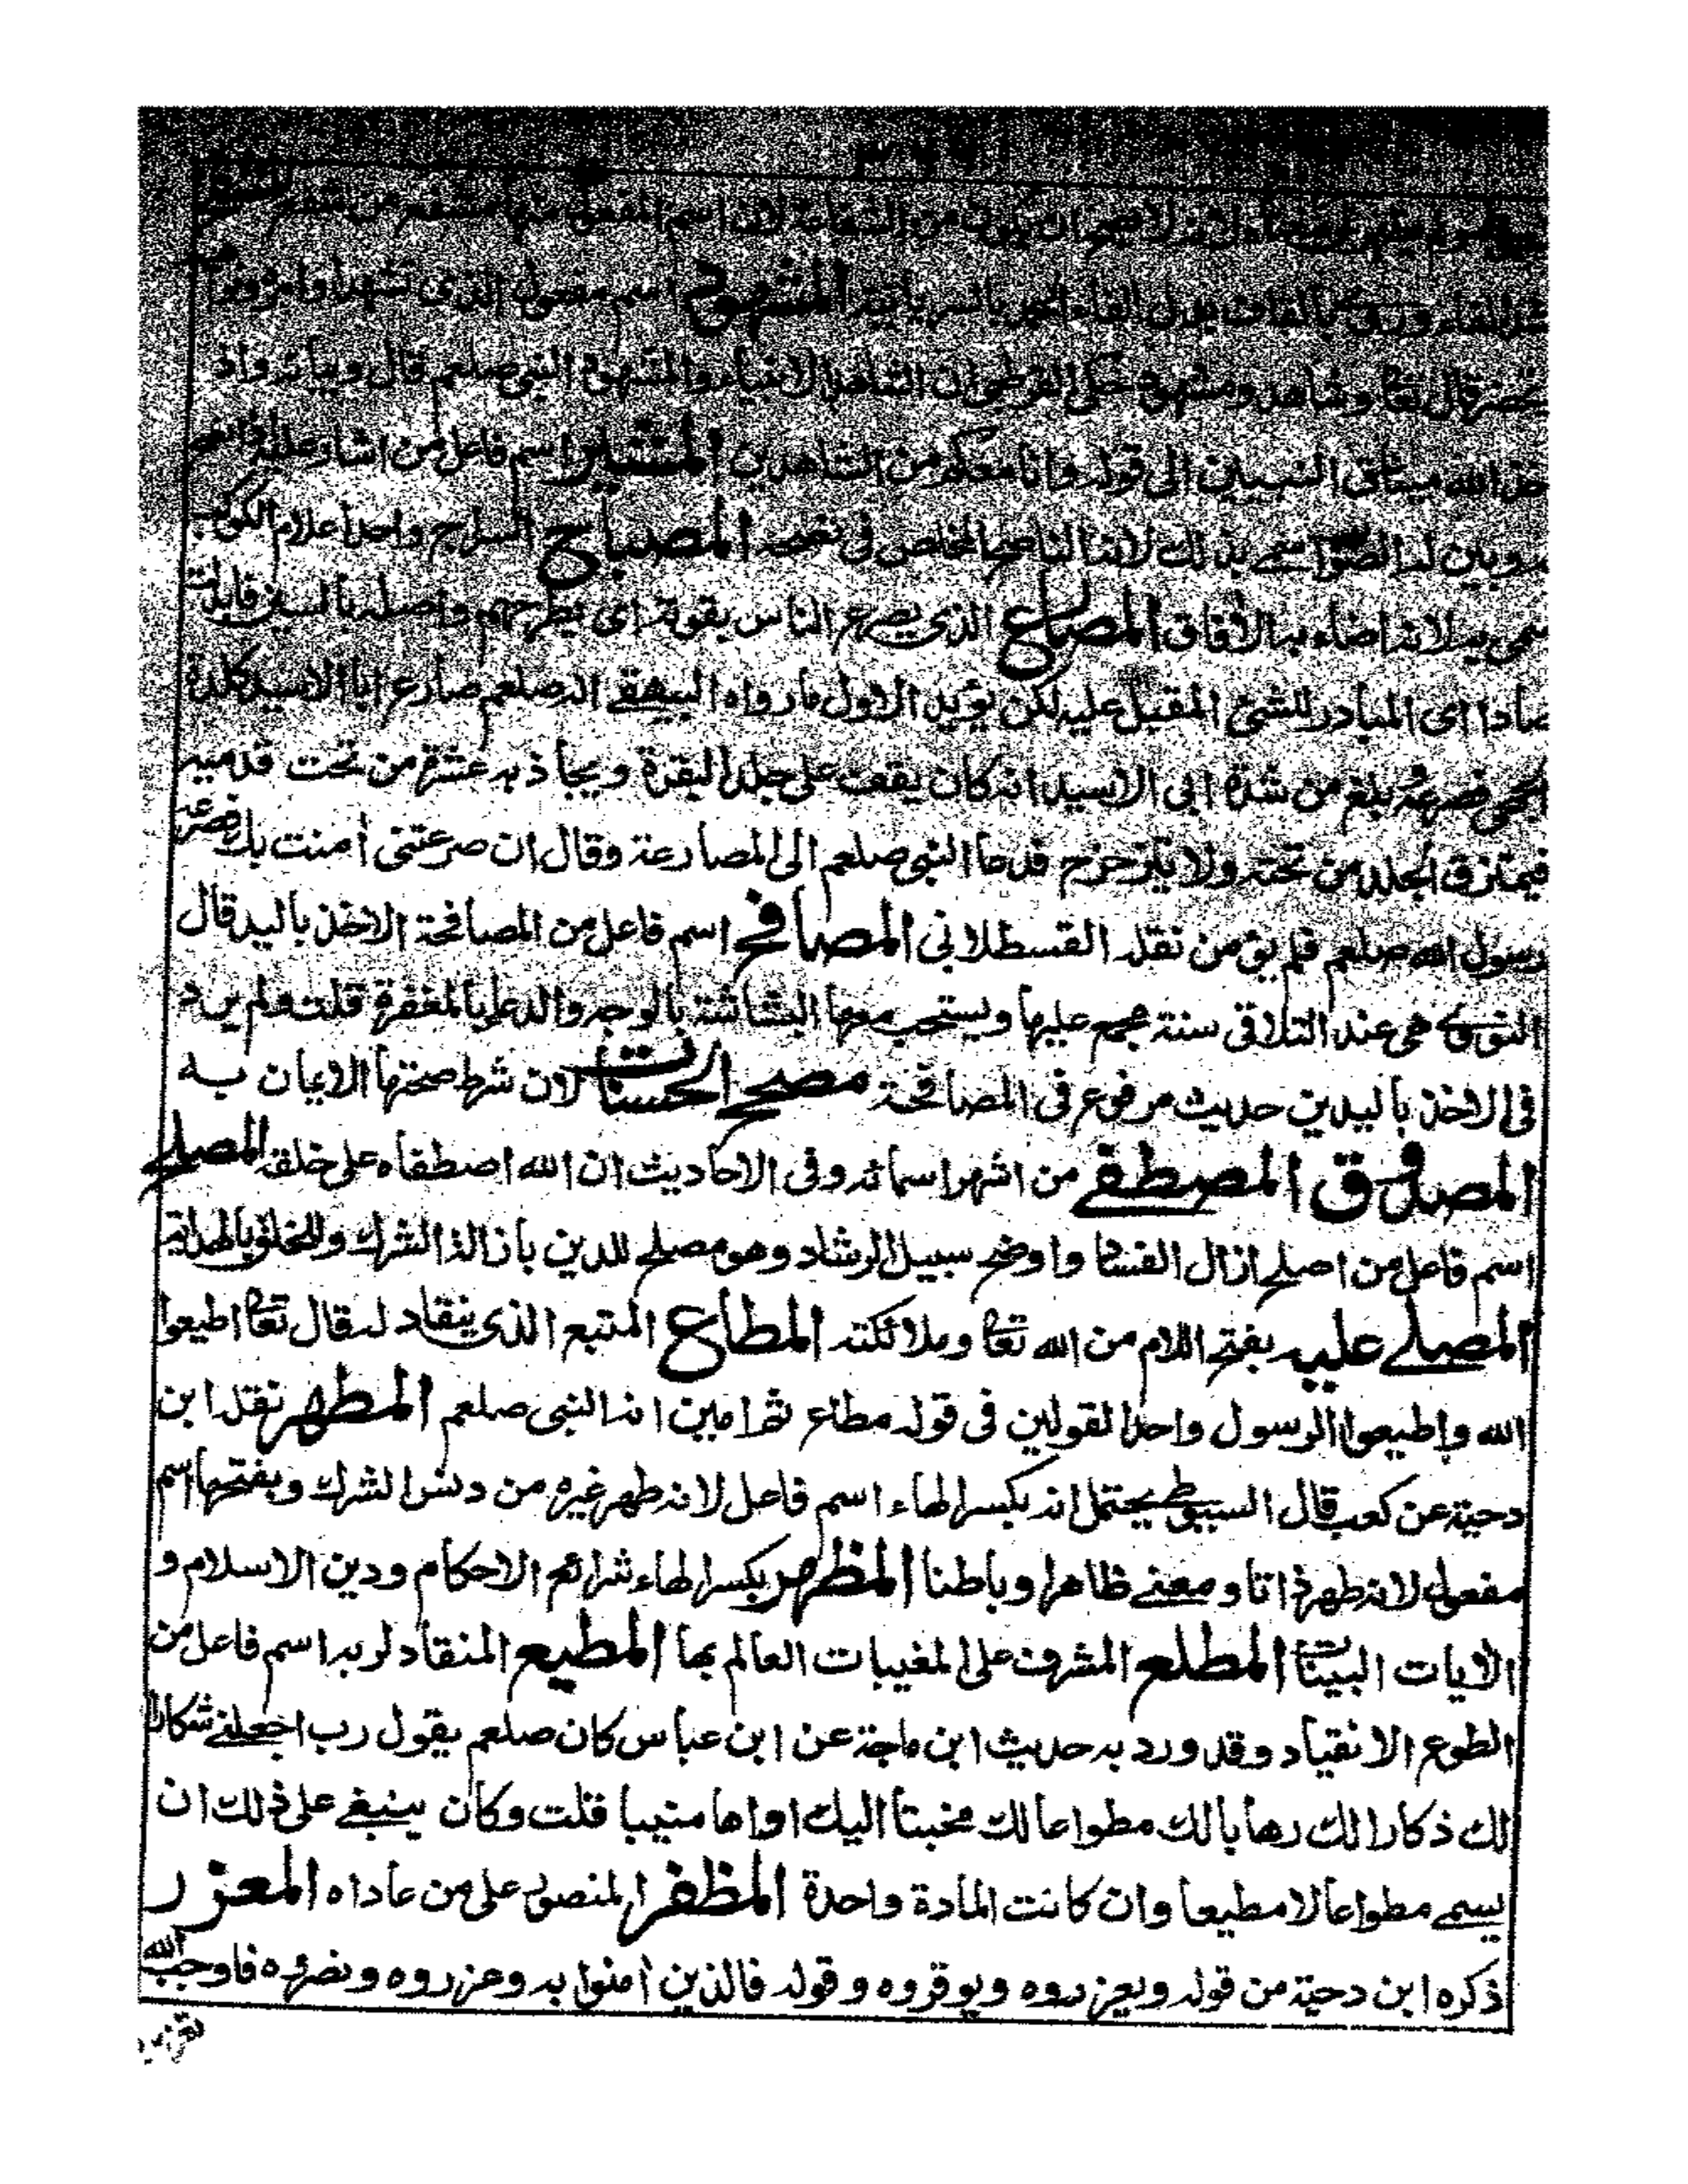 لانه لا يصح ان يكون من الشفاعة لان اسم المفعول منها مشفع من شفع
بالقاف بدل الفاء الحمد بالسريانية المشهود اسم مفعول الذى تشهد اوامره و
تحضر قال تعا وشاهد ومشهود حكى القرطبى ان الشاهد الانبياء والمشهود النبى صلعم قال وبيانه واذ
خذ الله ميثاق النبيين الى قوله وانا معكم من الشاهدين المشير اسم فاعل من اشار عليه
وبين له الصواب سمى بذلك لانه الناصح المخلص فى نصحه المصباح السراج واحد اعلام الكوكب
سمى به لانه اضاء به الافاق المصارع الذى يصرع الناس بقوة اى يطرحهم واصله بالسين فابدلت
صادا اى المبادر للشئ المقبل عليه لكن يؤيد الاول ما رواه البيهقے انه صلعم صارع ابا الاسيد كلدة
الجمحى فصرعه بلغ من شدة ابى الاسيد انه كان يقف على جلد البقرة ويجاذبه عشرة من تحت قدميه
فيتمزق الجلد من تحته ولا يتزحزح فدعا النبى صلعم الى المصارعة وقال ان صرعتنى أمنت بك فصرعه
رسول الله صلعم فلم يؤمن نقله القسطلانى المصافح اسم فاعل من المصافحة الاخذ باليد قال
النووى هى عند التلاقى سنة مجمع عليها ويستحب معها البشاشة بالوجه والدعا بالمغفرة قلت ولم يرد
فى الاخذ باليدين حديث مرفوع فى المصافحة مصحح الحسنات لان شرط صحتها الايمان به
المصدوق المصطفے من اشهر اسمائه وفى الاحاديث ان الله اصطفاه على خلقه المصلح
اسم فاعل من اصلح ازال الفساد واوضح سبيل الرشاد وهو مصلح للدين بازالة الشرك وللخلق بالهداية
المصلے عليه بفتح اللام من الله تعا وملائكته المطاع المتبع الذى ينقاد له قال تعا اطيعوا
الله واطيعوا الرسول واحد القولين فى قوله مطاع ثم امين انه النبى صلعم المطهر نقله ابن
دحية عن كعب قال السيوطى يحتمل انه بكسر الهاء اسم فاعل لانه طهر غيره من دنس الشرك وبفتحها اسم
مفعول لانه طهر ذاتا ومعنے ظاهرا وباطنا المظهر بكسر الهاء شرائع الاحكام ودين الاسلام و
الايات البينات المطلع المشرف على المغيبات العالم بها المطيع المنقاد لربه اسم فاعل من
الطوع الانقياد وقد ورد به حديث ابن ماجة عن ابن عباس كان صلعم يقول رب اجعلنے شكارا
لك ذكارا لك رهابا لك مطواعا لك مخبتا اليك اواها منيبا قلت وكان ينبغے على ذلك ان
يسمے مطواعا لا مطيعا وان كانت المادة واحدة المظفر المنصور على من عاداه المعزر
ذكره ابن دحية من قوله ويعزروه ويوقروه وقوله فالذين أمنوا به وعزروه ونصروه فاوجب الله
تعزيره